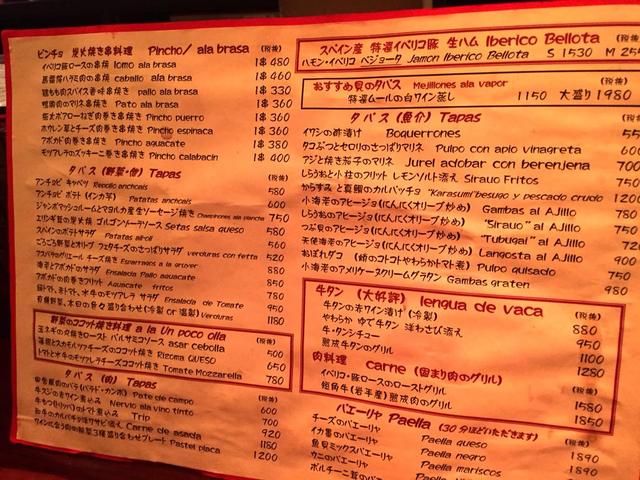 ピンチョ 炭火焼き串料理 Pincho/ ala brasa (税後)
イベリコ豚ロースの串焼 lomo ala brasa 1串 480
馬蹄筋ハラミ肉の串焼 caballo ala brasa 1串 460
鶏もも肉スパイス香味串焼き pallo ala brasa 1串 330
鴨胸肉のマリネ串焼き Pato ala brasa 1串 360
Pincho puerro 1串 360
ホウレン草とチーズ肉巻き串焼き Pincho espinaca 1串 360
アボカド肉巻き串焼き Pincho aguacate 1串 380
モツアレラのズッキーニ巻き串焼き Pincho calabacin 1串 400
タパス (野菜・他) Tapas (税後)
アンチョビ キャベツ Repollo anchois 580
アンチョビ ポテト (インカ芋) Patatas anchois 600
ジャンボマッシュルームとマヨルカ産生ソーセージ焼き Champinones ala plancha 750
エリンギ茸の炭火焼 ゴルゴンゾーラソース Setas salsa queso 580
スペインのポテトサラダ Patatas ali-oli 520
ごろごろ野菜とオリーブ フェタチーズのっけサラダ verduras con fetta 520
アスパラのグリエール チーズ焼き Esparragos a la gruver 880
海老とアボカドのサラダ Ensalada Pallo aguacate 850
アボカドの肉巻きフリット Aguacate fritos 850
Ensalada de Tomate 950
有機野菜、本日の色々盛り合わせ (冷製 or 温製) Verduras 1180
野菜のココット焼き料理 a la Un poco olla (税後)
玉ネギの丸焼きロースト バルサミコソース asar cebolla 500
Rizoma QUESO 650
トマトと水牛のモツアレラチーズココット焼き Tomate Mozzarella 780
タパス (肉) Tapas (税後)
田舎風肉のパテ (パテド・カンポ) Pate de campo 600
牛スジの赤ワイン煮込み Nervio ala vino tinto 700
牛もつ(トリッパ)のトマト煮込み Trip 920
和牛のカルパッチョ わさび添え Carne de asada 1180
ワインに合う肉の前菜3種盛り合わせプレート Pastel placa 1200
スペイン産 特選イベリコ豚 生ハム Iberico Bellota (税後)
ハモン・イベリコ ベジョータ Jamon Iberico Bellota S 1530 M 25
おすすめ貝のタパス Mejillones ala vapor (税後)
特選ムールの白ワイン蒸し 1150 大盛り 1980
タパス (魚介) Tapas
イワシの酢漬け Boquerrones 55
タコぶつとセロリのさっぱりマリネ Pulpo con apio vinagreta 600
アジと焼き茄子のマリネ Jurel adobar con berenjena 700
しらうおと小柱のフリット レモンソルト添え Sirauo Fritos 750
からすみ と真鯛のカルパッチョ "Karasumi"besugo y pescado crudo 1200
小海老のアヒージョ(にんにくオリーブ炒め) Gambas al AJillo 780
しらうおのアヒージョ(にんにくオリーブ炒め) "Sirauo" al AJillo 750
つぶ貝のアヒージョ(にんにくオリーブ炒め) "Tubugai" al AJillo 72
天使海老のアヒージョ(にんにくオリーブ炒め) Langosta al AJillo 900
おぼれダコ (蛸のコトコトやわらかトマト煮) Pulpo quisado 750
小海老のアメリケーヌクリームグラタン Gambas graten 980
牛タン (大好評) lengua de vaca (税後)
牛タンの赤ワイン漬け(冷製) 880
やわらか ゆで牛タン 洋わさび添え 950
牛・タンシチュー 1100
熟成牛タンのグリル 1280
肉料理 carne (固まり肉のグリル) (税後)
イベリコ・豚ロースのローストグリル 1580
短角牛(岩手産)熟成肉のグリル 1850
パエーリャ Paella (30分ほどいただきます) (税後)
チーズのパエーリャ Paella queso 1580
イカ墨のパエーリャ Paella negro 1890
魚貝ミックスパエーリャ Paella mariscos 1890
ウニのパエーリャ
ポルチーニ茸のパエーリャ